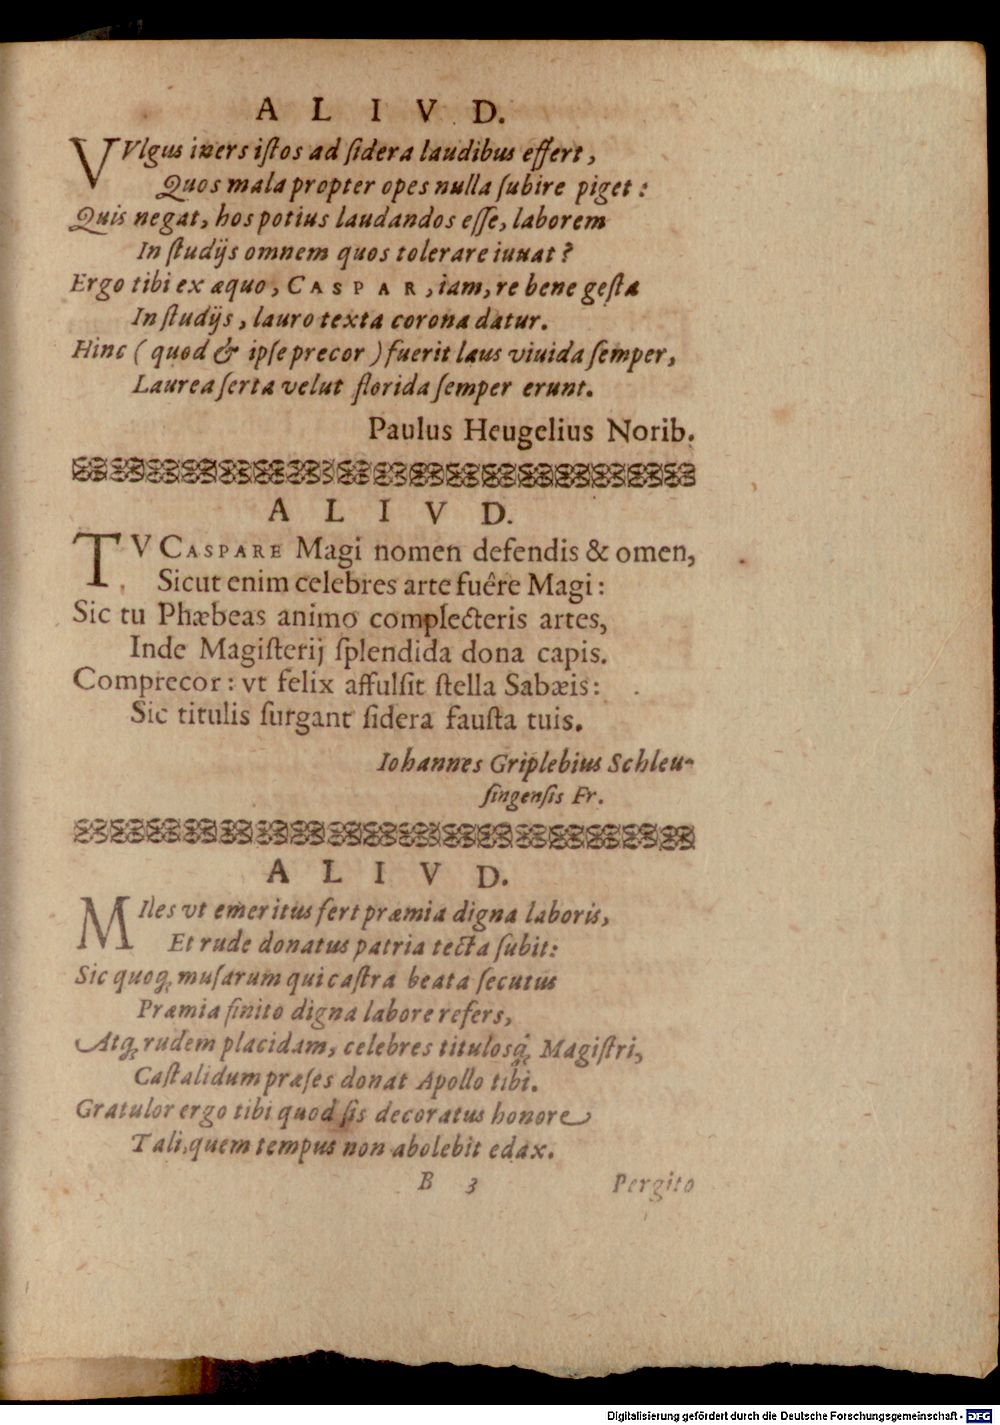 ALIVD.
VVlgus iners iſtos ad ſidera laudibus effert,
Quos mala propter opes nulla ſubire piget:
Quis negat, hos potius laudandos eſſe, laborem
In ſtudijs omnem quos tolerare iuuat?
Ergo tibi ex æquo, CASPAR, iam, re bene geſta
In ſtudijs, lauro texta corona datur.
Hinc (quod & ipſe precor) fuerit laus viuida ſemper,
Laurea ſerta velut florida ſemper erunt.
Paulus Heugelius Norib.
ALIVD.
TV CASPARE Magi nomen defendis & omen,
Sicut enim celebres arte fuêre Magi:
Sic tu Phæbeas animo complecteris artes,
Inde Magiſterij ſplendida dona capis.
Comprecor: vt felix affulſit ſtella Sabæis:
Sic titulis ſurgant ſidera fauſta tuis.
Iohannes Griplebius Schleu-
ſingenſis Fr.
ALIVD.
MIles vt emeritus fert præmia digna laboris,
Et rude donatus patria tecta ſubit:
Sic quoq; muſarum qui caſtra beata ſecutus
Præmia finito digna labore refers,
Atq; rudem placidam, celebres titulosq́; Magiſtri,
Caſtalidum præſes donat Apollo tibi.
Gratulor ergo tibi quod ſis decoratus honore
Tali, quem tempus non abolebit edax.
B 3 Pergito
Digitalisierung gefördert durch die Deutsche Forschungsgemeinschaft - DFG